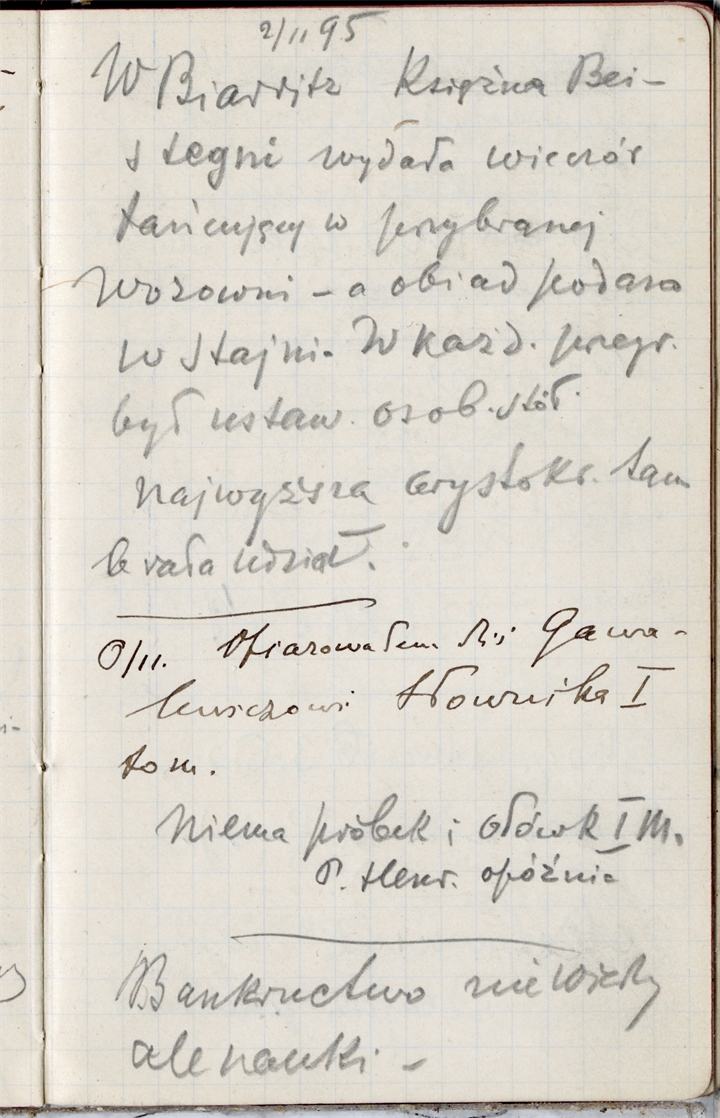 2/11 95
W Biarritz Księżna Bei-
stegni wydała wieczór
tańcujący w przybranej
wozowni – a obiad podano
w stajni. W każd. przegr.
był ustaw. osob. stół.
najwyższa arystokr. tam
brała udział.
/11. Ofiarowałem Gawa-
lewiczowi Słownika I
tom.
Niema próbek i ołówk I M.
P. Henr. opóźnia
Bankructwo nie wiedzy
ale nauki –